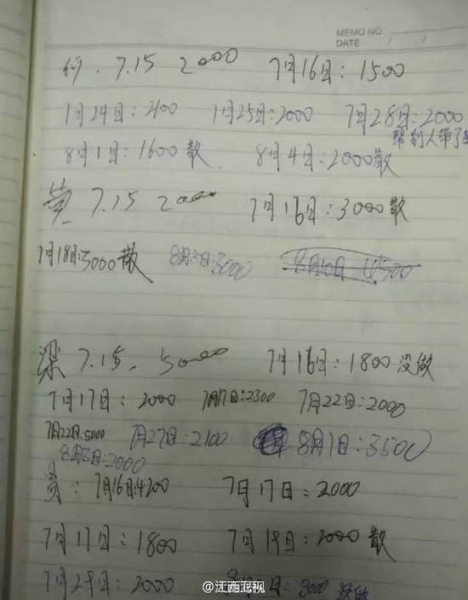 MEMO NO.
DATE / /
何. 7.15 2000 7月16日: 1500
1月24日: 200 1月25日: 2000 7月28日: 2000
8月1日: 1600散 8月4日: 2000散
黄 7.15 2000 7月16日: 3000散
7月18日: 3000散 8月5日: 3000 8月10日 4500
梁 7.15. 5000 7月16日: 1800 没做
7月17日: 2000 7月17日: 2300 7月22日: 2000
7月22日: 5000 7月27日: 2100 8月1日: 3500
8月3日: 2000
7月16日: 4200 7月17日: 2000
7月17日: 1800 7月19日: 2000 散
7月29日: 2000 3000 没做
@江西卫视